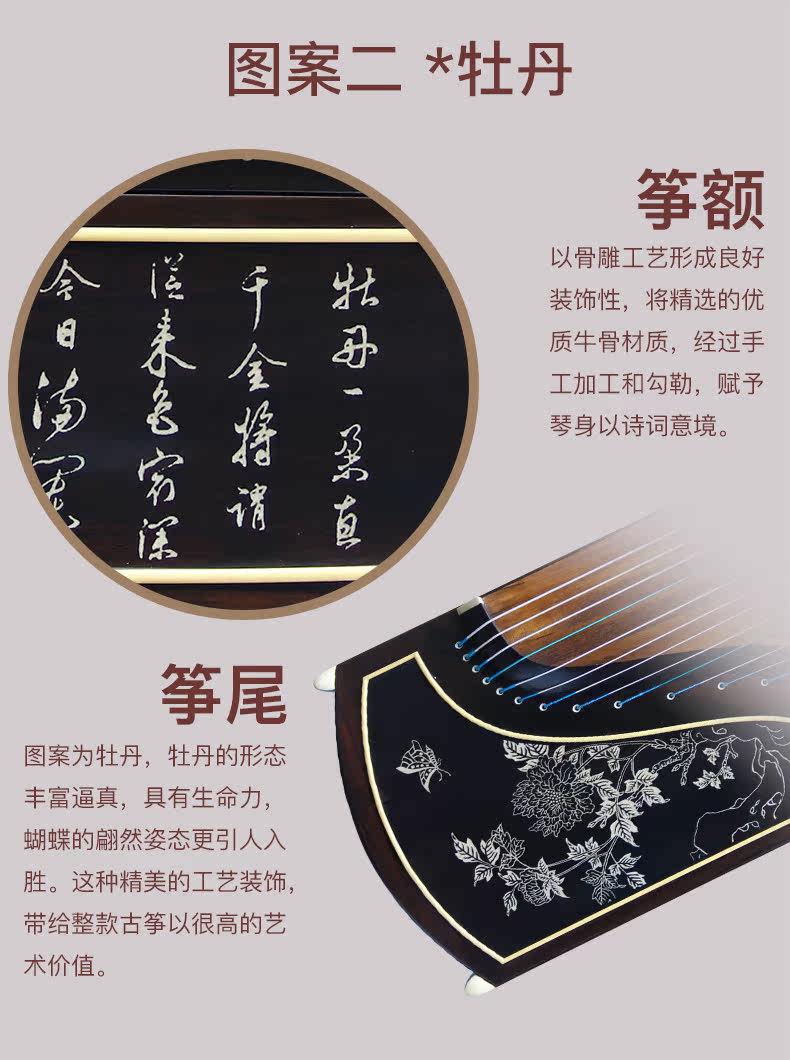 图案二 *牡丹
牡丹一朵直
千金将谓
從来色最深
今日满
筝额
以骨雕工艺形成良好
装饰性，将精选的优
质牛骨材质，经过手
工加工和勾勒，赋予
琴身以诗词意境。
筝尾
图案为牡丹，牡丹的形态
丰富逼真，具有生命力，
蝴蝶的翩然姿态更引人入
胜。这种精美的工艺装饰，
带给整款古筝以很高的艺
术价值。